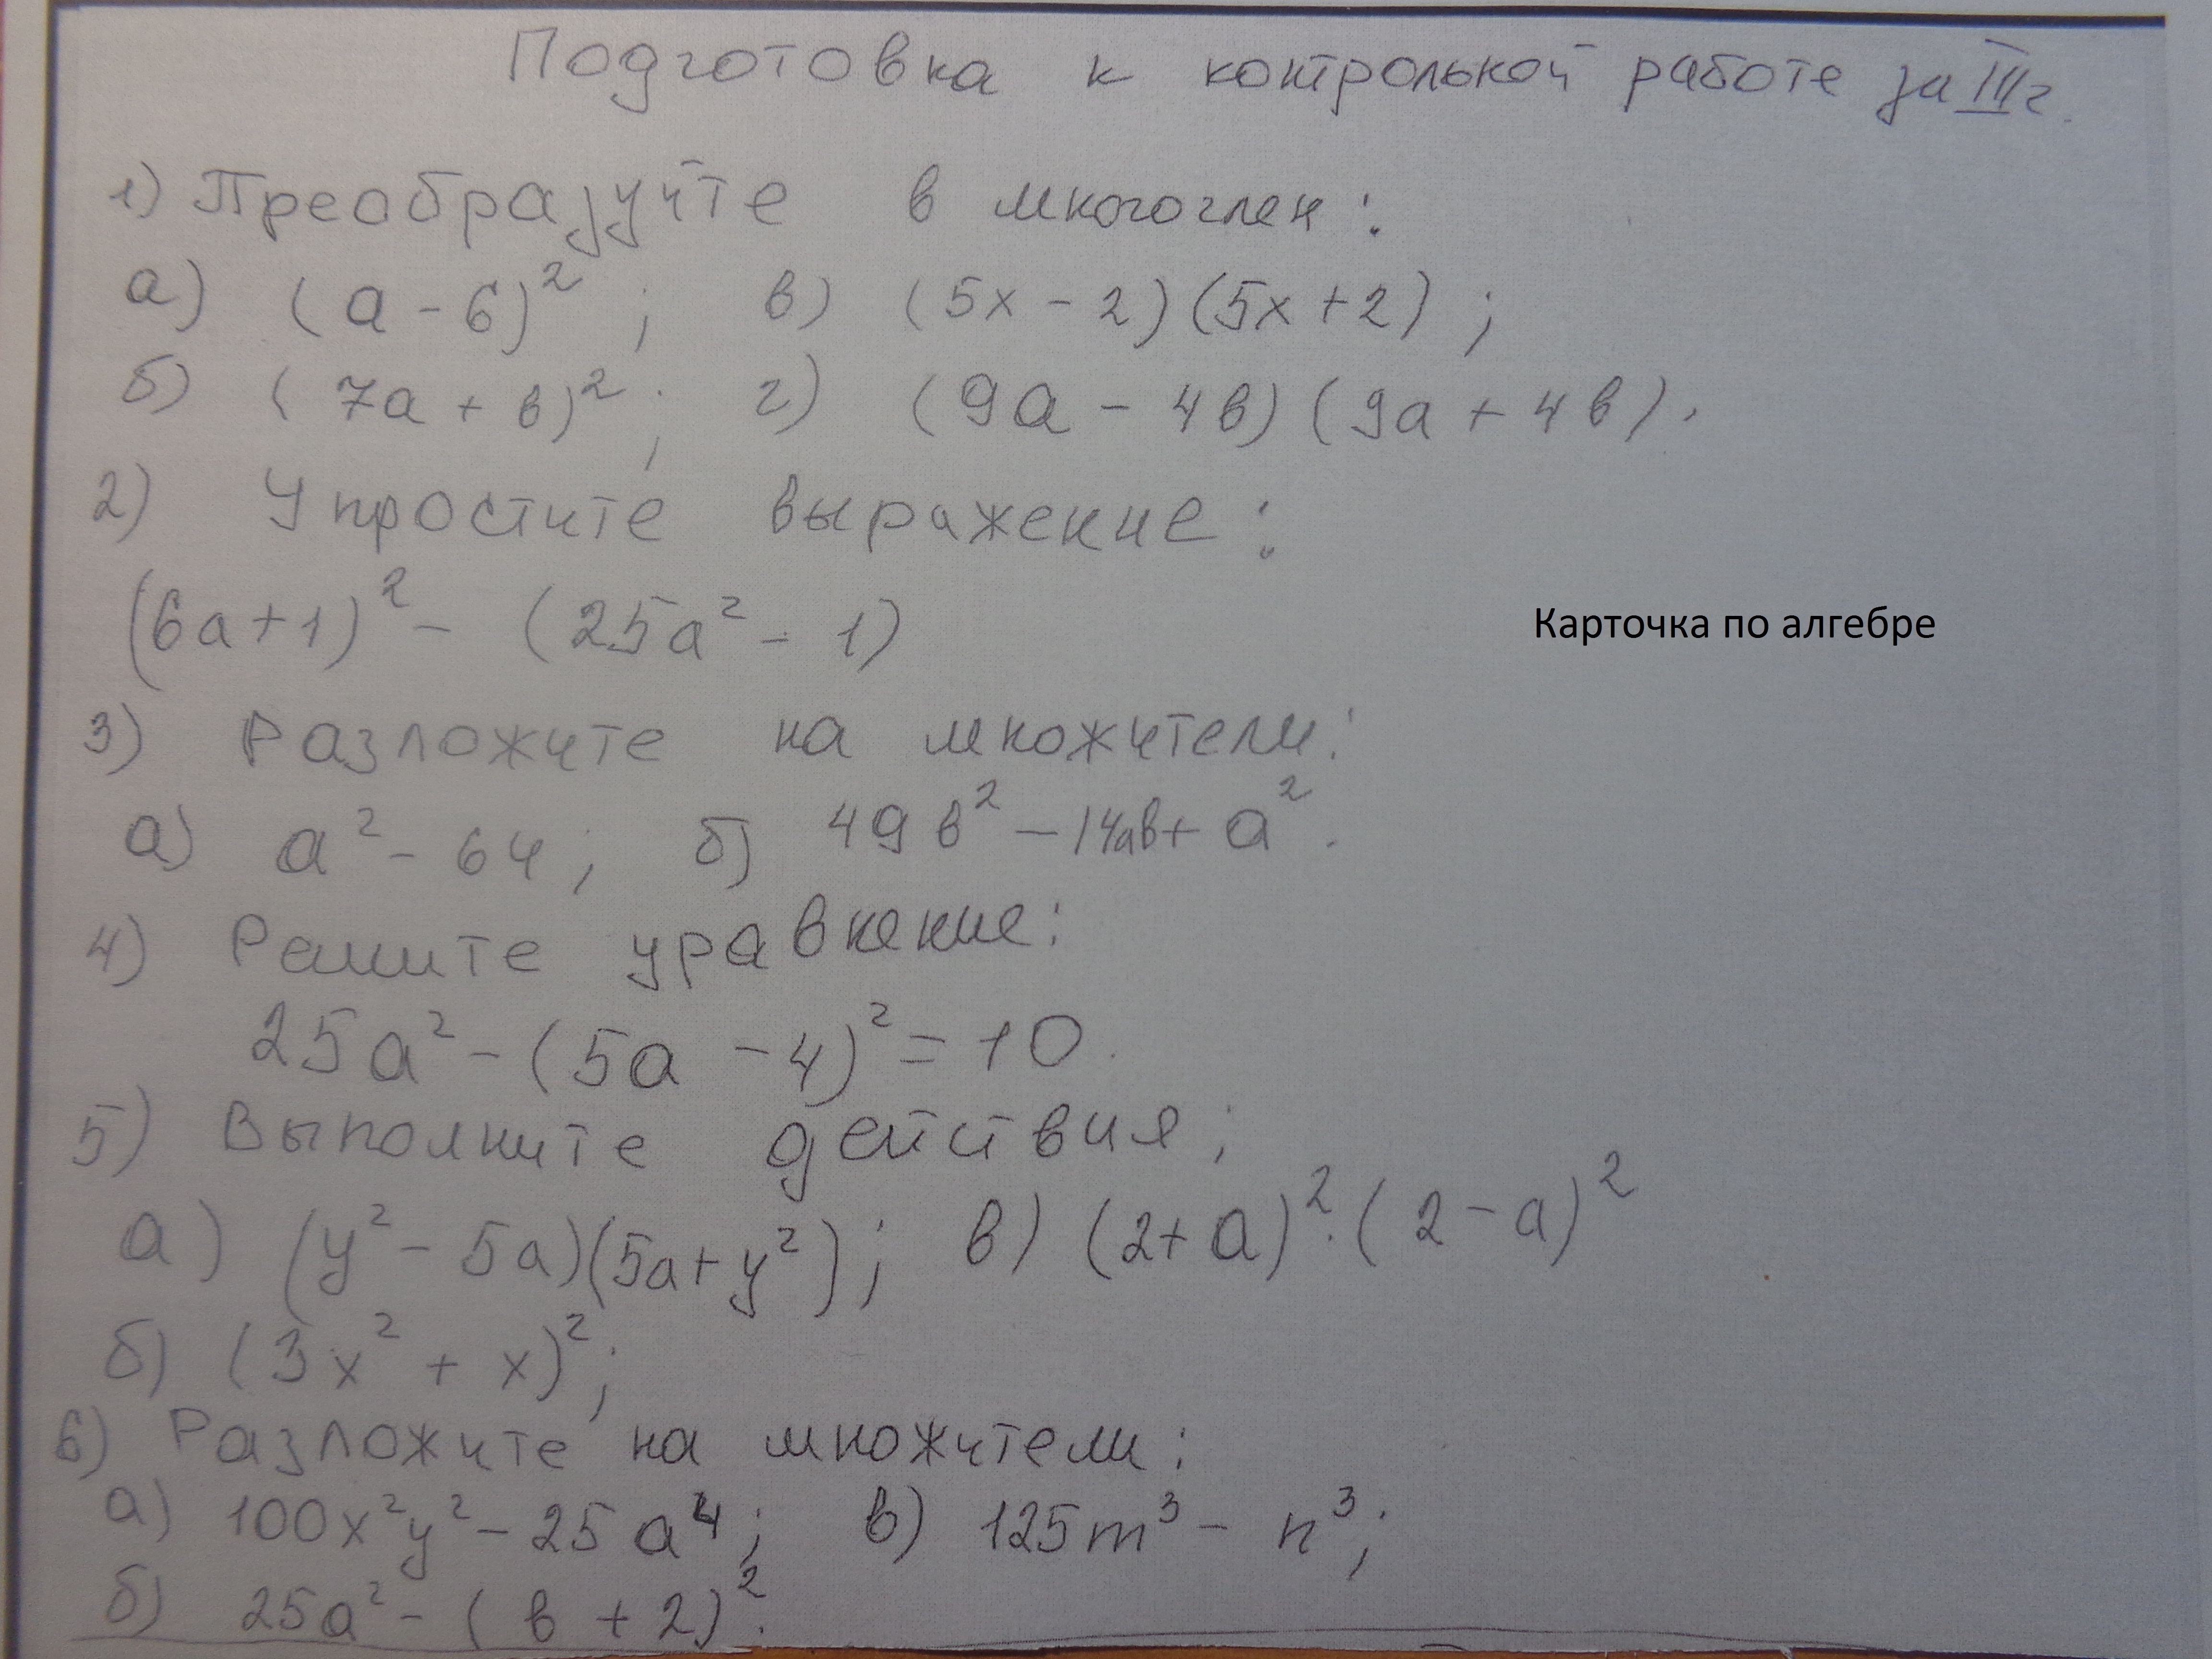 Подготовка к контрольной работе за III г.
1) Преобразуйте в многочлен:
а) (a - 6)²; в) (5x - 2)(5x + 2);
б) (7a + в)²; г) (9a - 4в)(9a + 4в).
2) Упростите выражение:
(6a+1)² - (25a² - 1)
Карточка по алгебре
3) Разложите на множители:
а) a² - 64; б) 49в² - 14aв + a².
4) Решите уравнение:
25a² - (5a - 4)² = 10.
5) Выполните действия;
а) (y² - 5a)(5a + y²); в) (2 + a)² · (2 - a)²
б) (3x² + x)²;
6) Разложите на множители:
а) 100x²y² - 25a⁴; в) 125m³ - n³;
б) 25a² - (в + 2)².